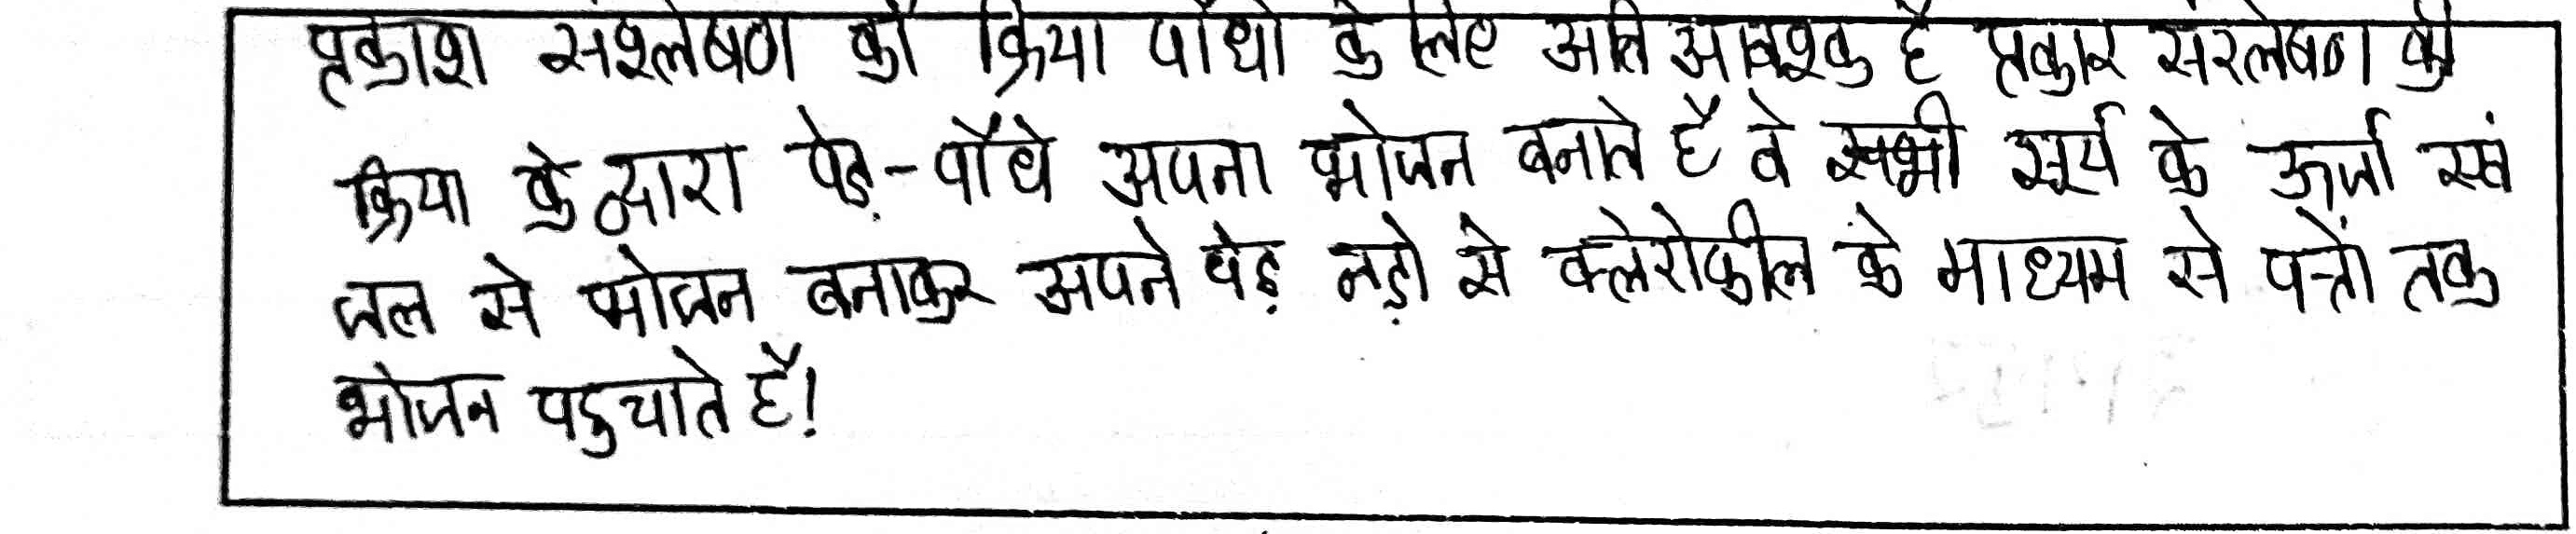 प्रकाश संश्लेषण की क्रिया पौधो के लिए अति आवश्क है प्रकार संरलेषण की
क्रिया के द्वारा पेड़-पौधे अपना भोजन बनाते है वे सभी सूर्य के ऊर्जा एवं
जल से भोजन बनाकर अपने पेड़ जड़ो से क्लेरोफील के माध्यम से पत्तों तक
भोजन पहुचाते है!